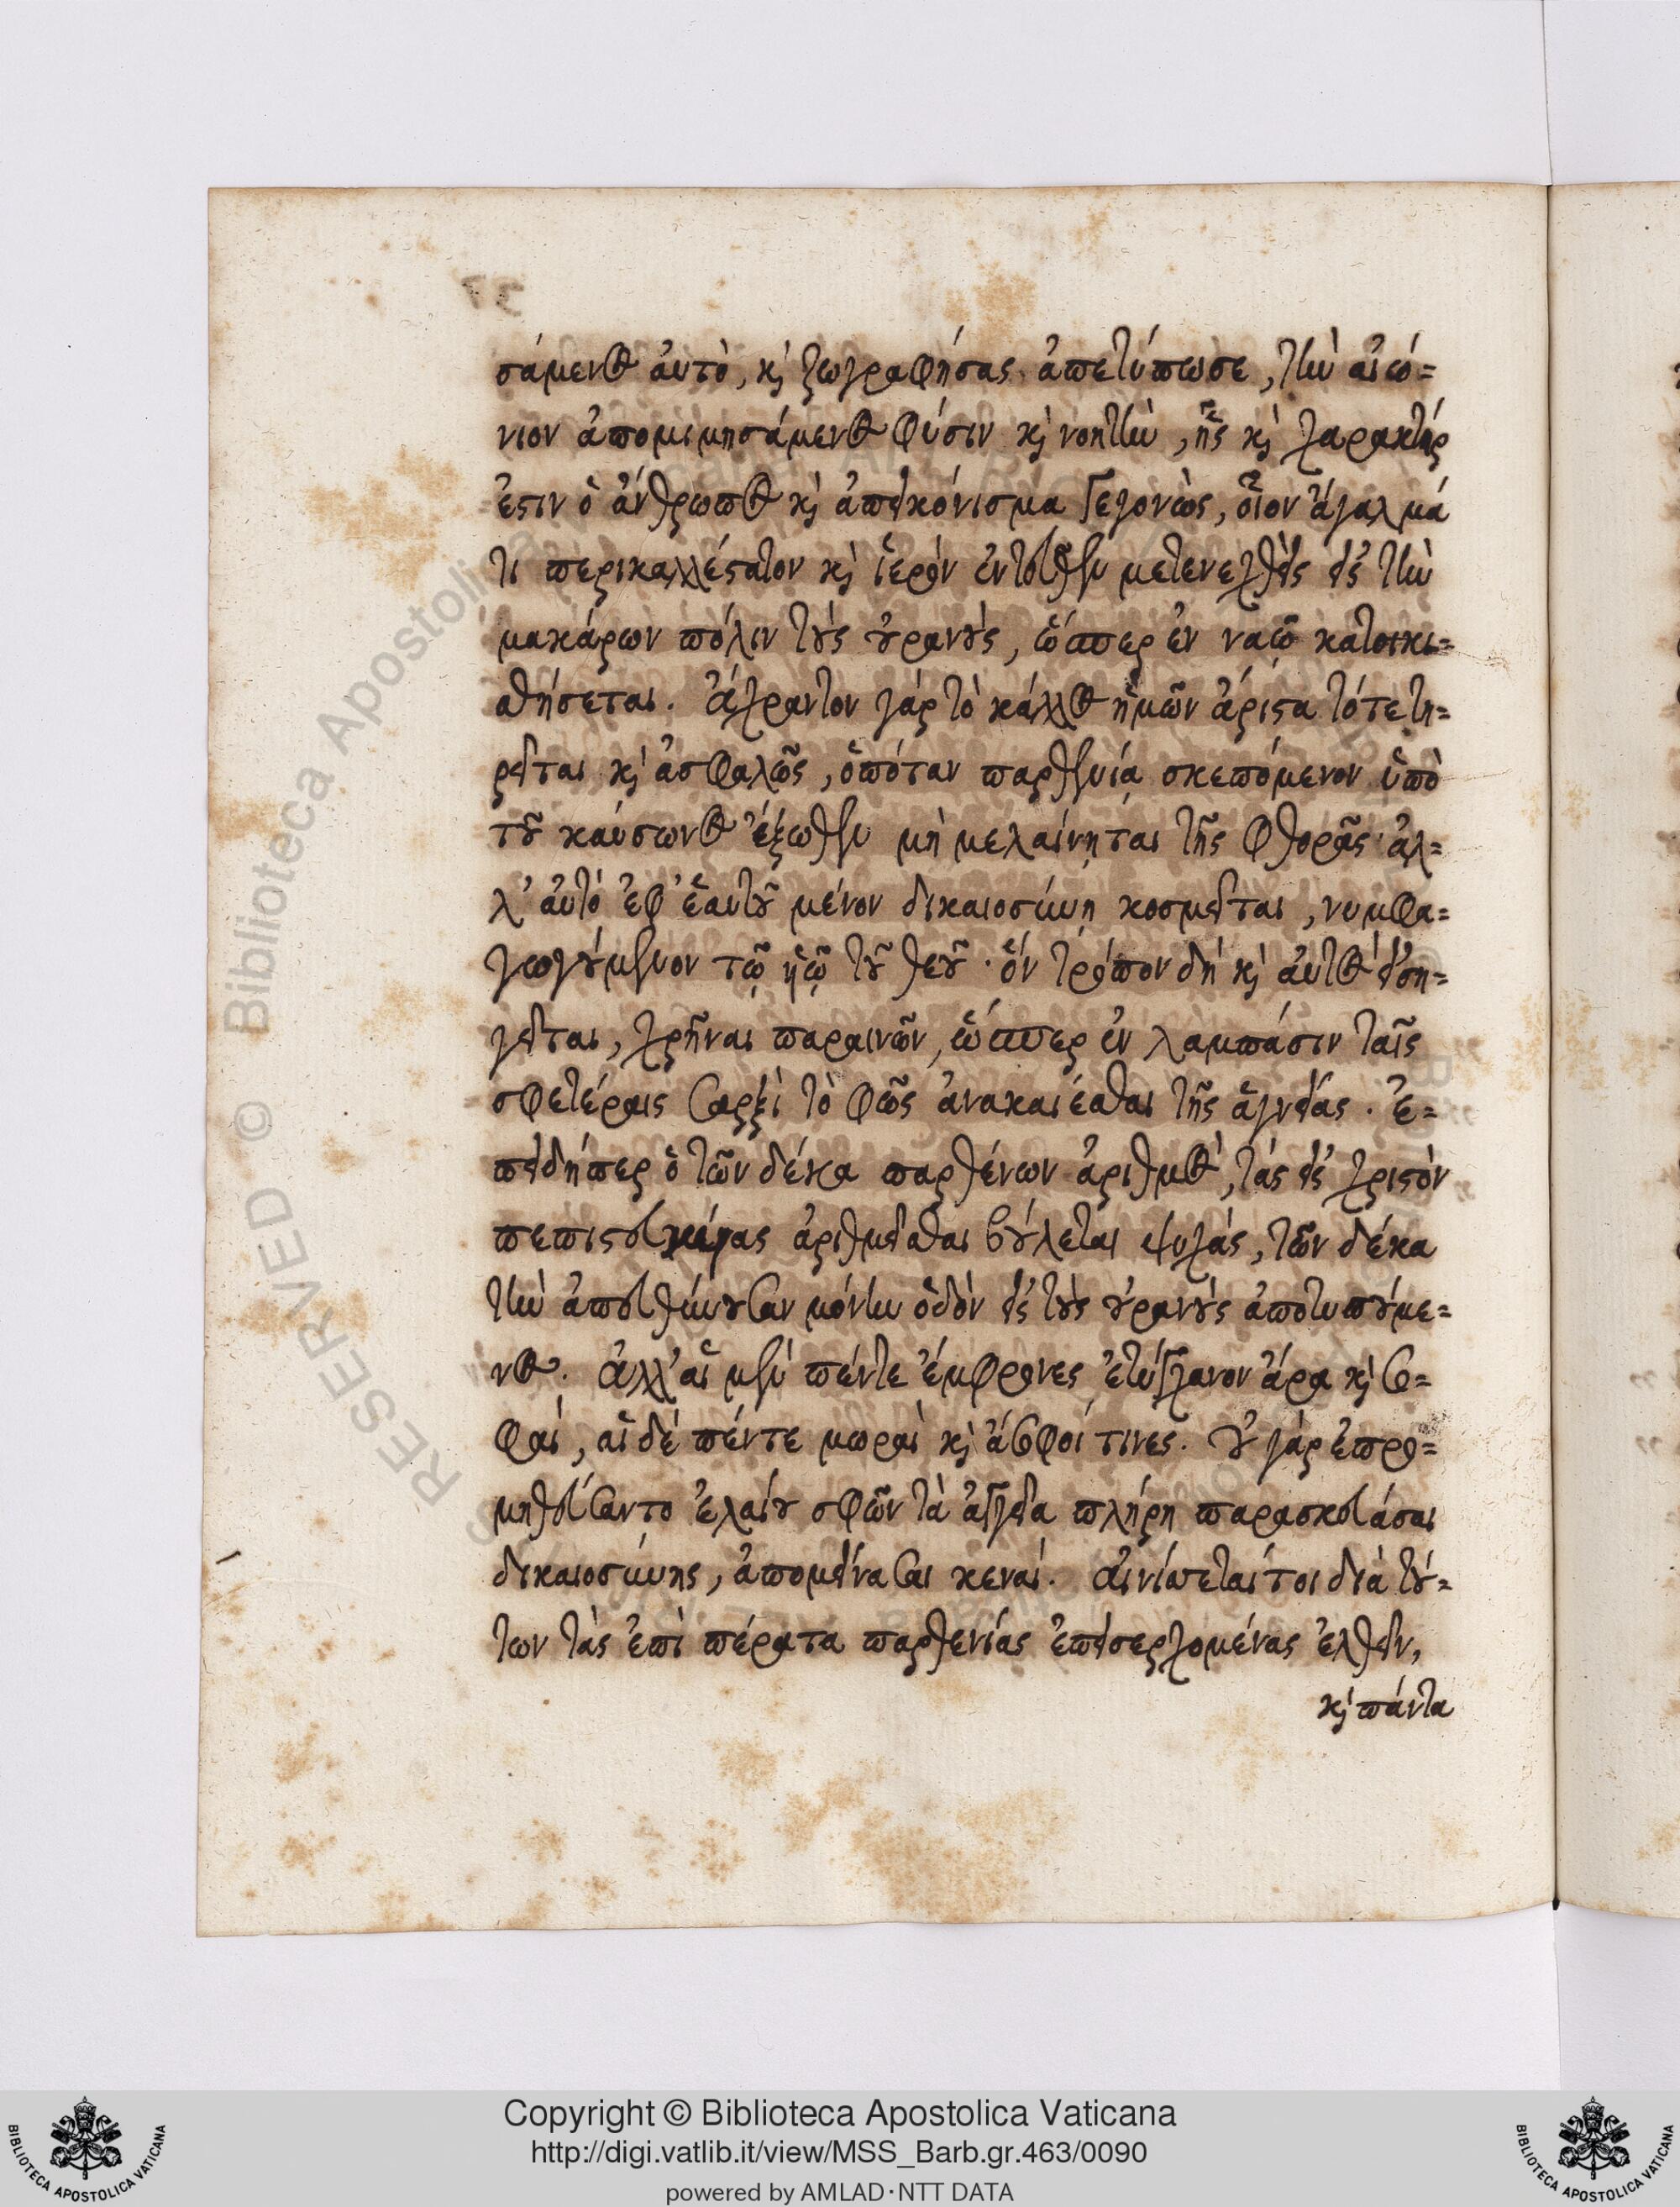 σάμενος ἀυτὸ, καὶ ζωγραφήσας ἀπετύπωσε, τὴν αἰώ=
νιον ἀπομιμησάμενος φύσιν καὶ νοητὴν, ἧς καὶ χαρακτήρ
ἐστιν ὁ ἄνθρωπος καὶ ἀπεικόνισμα γεγονὼς, οἷον ἄγαλμά
τι περικαλλέστατον καὶ ἱερόν ἐντεῦθεν μετενεχθεὶς εἰς τὴν
μακάρων πόλιν τοὺς οὐρανοὺς, ὥσπερ ἐν ναῷ κατοικι=
σθήσεται. ἄχραντον γάρ τὸ κάλλος ἡμῶν ἄριστα τότε τη=
ρεῖται καὶ ἀσφαλῶς, ὁπόταν παρθενίᾳ σκεπόμενον ὑπὸ
τοῦ καύσωνος ἔξωθεν μὴ μελαίνηται τῆς φθορᾶς· ἀλ=
λ' ἀυτό ἐφ' ἑαυτοῦ μένον δικαιοσύνῃ κοσμεῖται, νυμφα=
γωγούμενον τῷ ὑιῷ τοῦ θεοῦ· ὅν τρόπον δή καὶ ἀυτὸς εἰση=
γεῖται, χρῆναι παραινῶν, ὥσπερ ἐν λαμπάσιν ταῖς
σφετέραις σαρξὶ τὸ φῶς ἀνακαίεσθαι τῆς ἁγνείας. ἐ=
πειδήπερ ὁ τῶν δέκα παρθένων ἀριθμὸς, τάς εἰς χριστὸν
πεπιστευκυίας ἀριθμεῖσθαι βούλεται ψυχάς, τῶν δέκα
τὴν ἀπευθύνουσαν μόνην ὁδὸν εἰς τοὺς οὐρανοὺς ἀποτυπούμε=
νος. ἀλλ' αἱ μεν πέντε ἔμφρονες ἐτύγχανον ἄρα καὶ σο=
φαί, αἱ δέ πέντε μωραὶ καὶ ἄσοφοί τινες. οὐ γάρ ἐπρο=
μηθεύσαντο ἐλαίου σφῶν τὰ ἀγγεῖα πλήρη παρασκευάσαι
δικαιοσύνης, ἀπομείνασαι κεναί. αἰνίττεταί τοι διὰ τού=
των τὰς ἐπὶ πέρατα παρθενίας ἐπεισερχομένας ἐλθεῖν,
καὶ πάντα
Copyright © Biblioteca Apostolica Vaticana
http://digi.vatlib.it/view/MSS_Barb.gr.463/0090
powered by AMLAD·NTT DATA